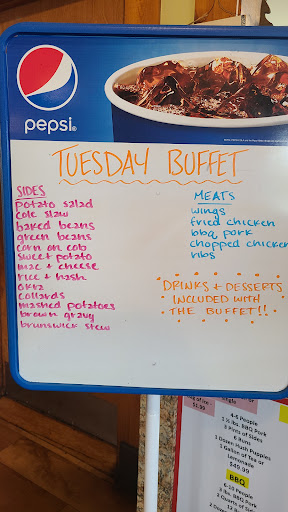 pepsi®
TUESDAY BUFFET
SIDES
potato salad
cole slaw
baked beans
green beans
corn on cob
sweet potato
mac + cheese
rice + hash
okra
collards
mashed potatoes
brown gravy
brunswick stew
MEATS
wings
fried chicken
bbq pork
chopped chicken
ribs
DRINKS + DESSERTS
INCLUDED WITH
THE BUFFET!!
$1.99
4-5 People
1 ½ lbs. BBQ Pork
3 Pints of Sides
6 Buns
1 Dozen Hush Puppies
1 Gallon of Tea or
Lemonade
$49.99
BBQ
8-10 People
3 lbs. BBQ Pork